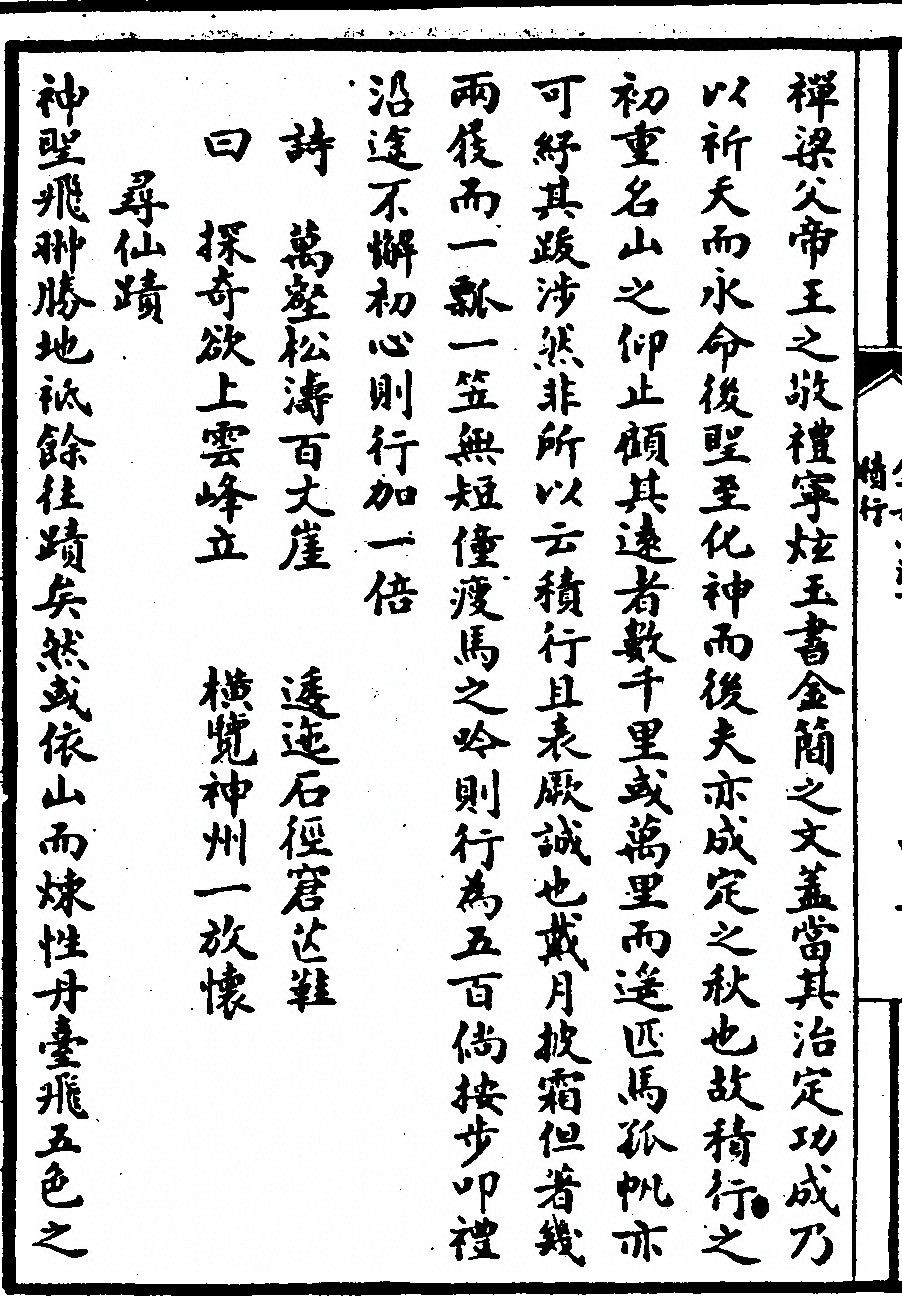 禪梁父帝王之敬禮寧炫玉書金簡之文蓋當其治定功成乃
以祈天而永命後聖至化神而後夫亦成定之秋也故積行之
初重名山之仰止頋其遠者數千里或萬里而遥匹馬孤帆亦
可紓其跋涉然非所以云積行且表厥誠也戴月披霜但著幾
兩屐而一瓢一笠無短僮瘦馬之呤則行為五百倘按步叩禮
沿途不懈初心則行加一倍
詩　萬壑松濤百丈崖　逶迤石徑窘芒鞋
曰　探奇欲上雲峰立　橫覽神州一放懷
尋仙蹟
神聖飛翀勝地袛餘往蹟矣然或依山而煉性丹臺飛五色之
積行